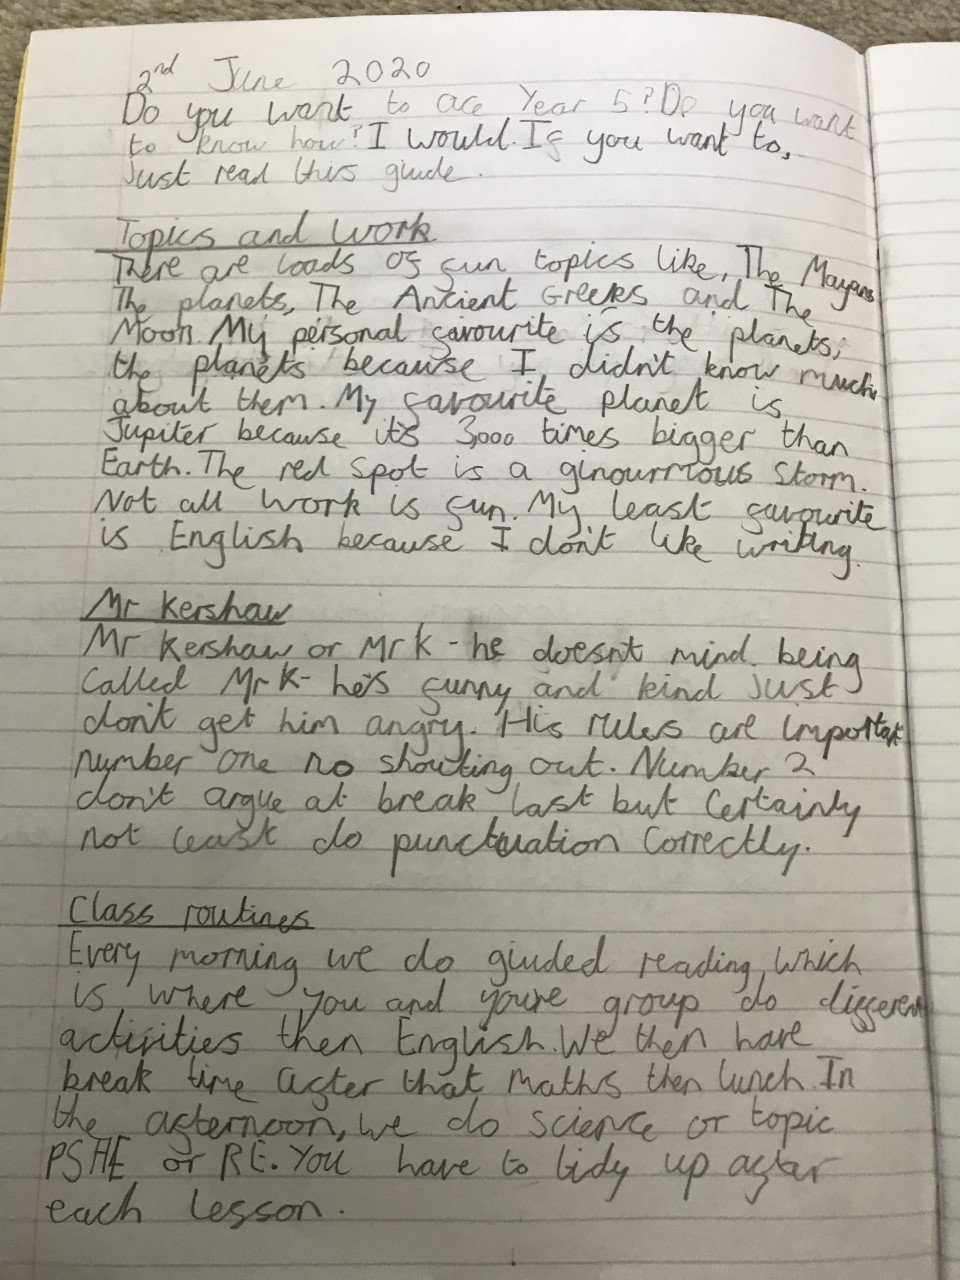 2nd June 2020
Do you want to ace Year 5? Do you want
to know how? I would. If you want to,
Just read this giude.
Topics and work
There are loads of fun topics like, The Mayans
The planets, The Antient Greeks and The
Moon. My personal favourite is the planets,
the planets because I didn't know much
about them. My favourite planet is
Jupiter because it's 3,000 times bigger than
Earth. The red spot is a ginourmous storm.
Not all work is fun. My least favourite
is English because I don't like writing.
Mr Kershaw
Mr Kershaw or Mr K - he doesn't mind being
called Mr K - he's funny and kind Just
don't get him angry. His rules are importat
number one no shouting out. Number 2
don't argue at break last but certainly
not least do punctuation correctly.
Class routines
Every morning we do giuded reading, which
is where you and youre group do different
activities then English. We then have
break time after that maths then lunch. In
the afternoon, we do science or topic
PSHE or RE. You have to tidy up after
each lesson.